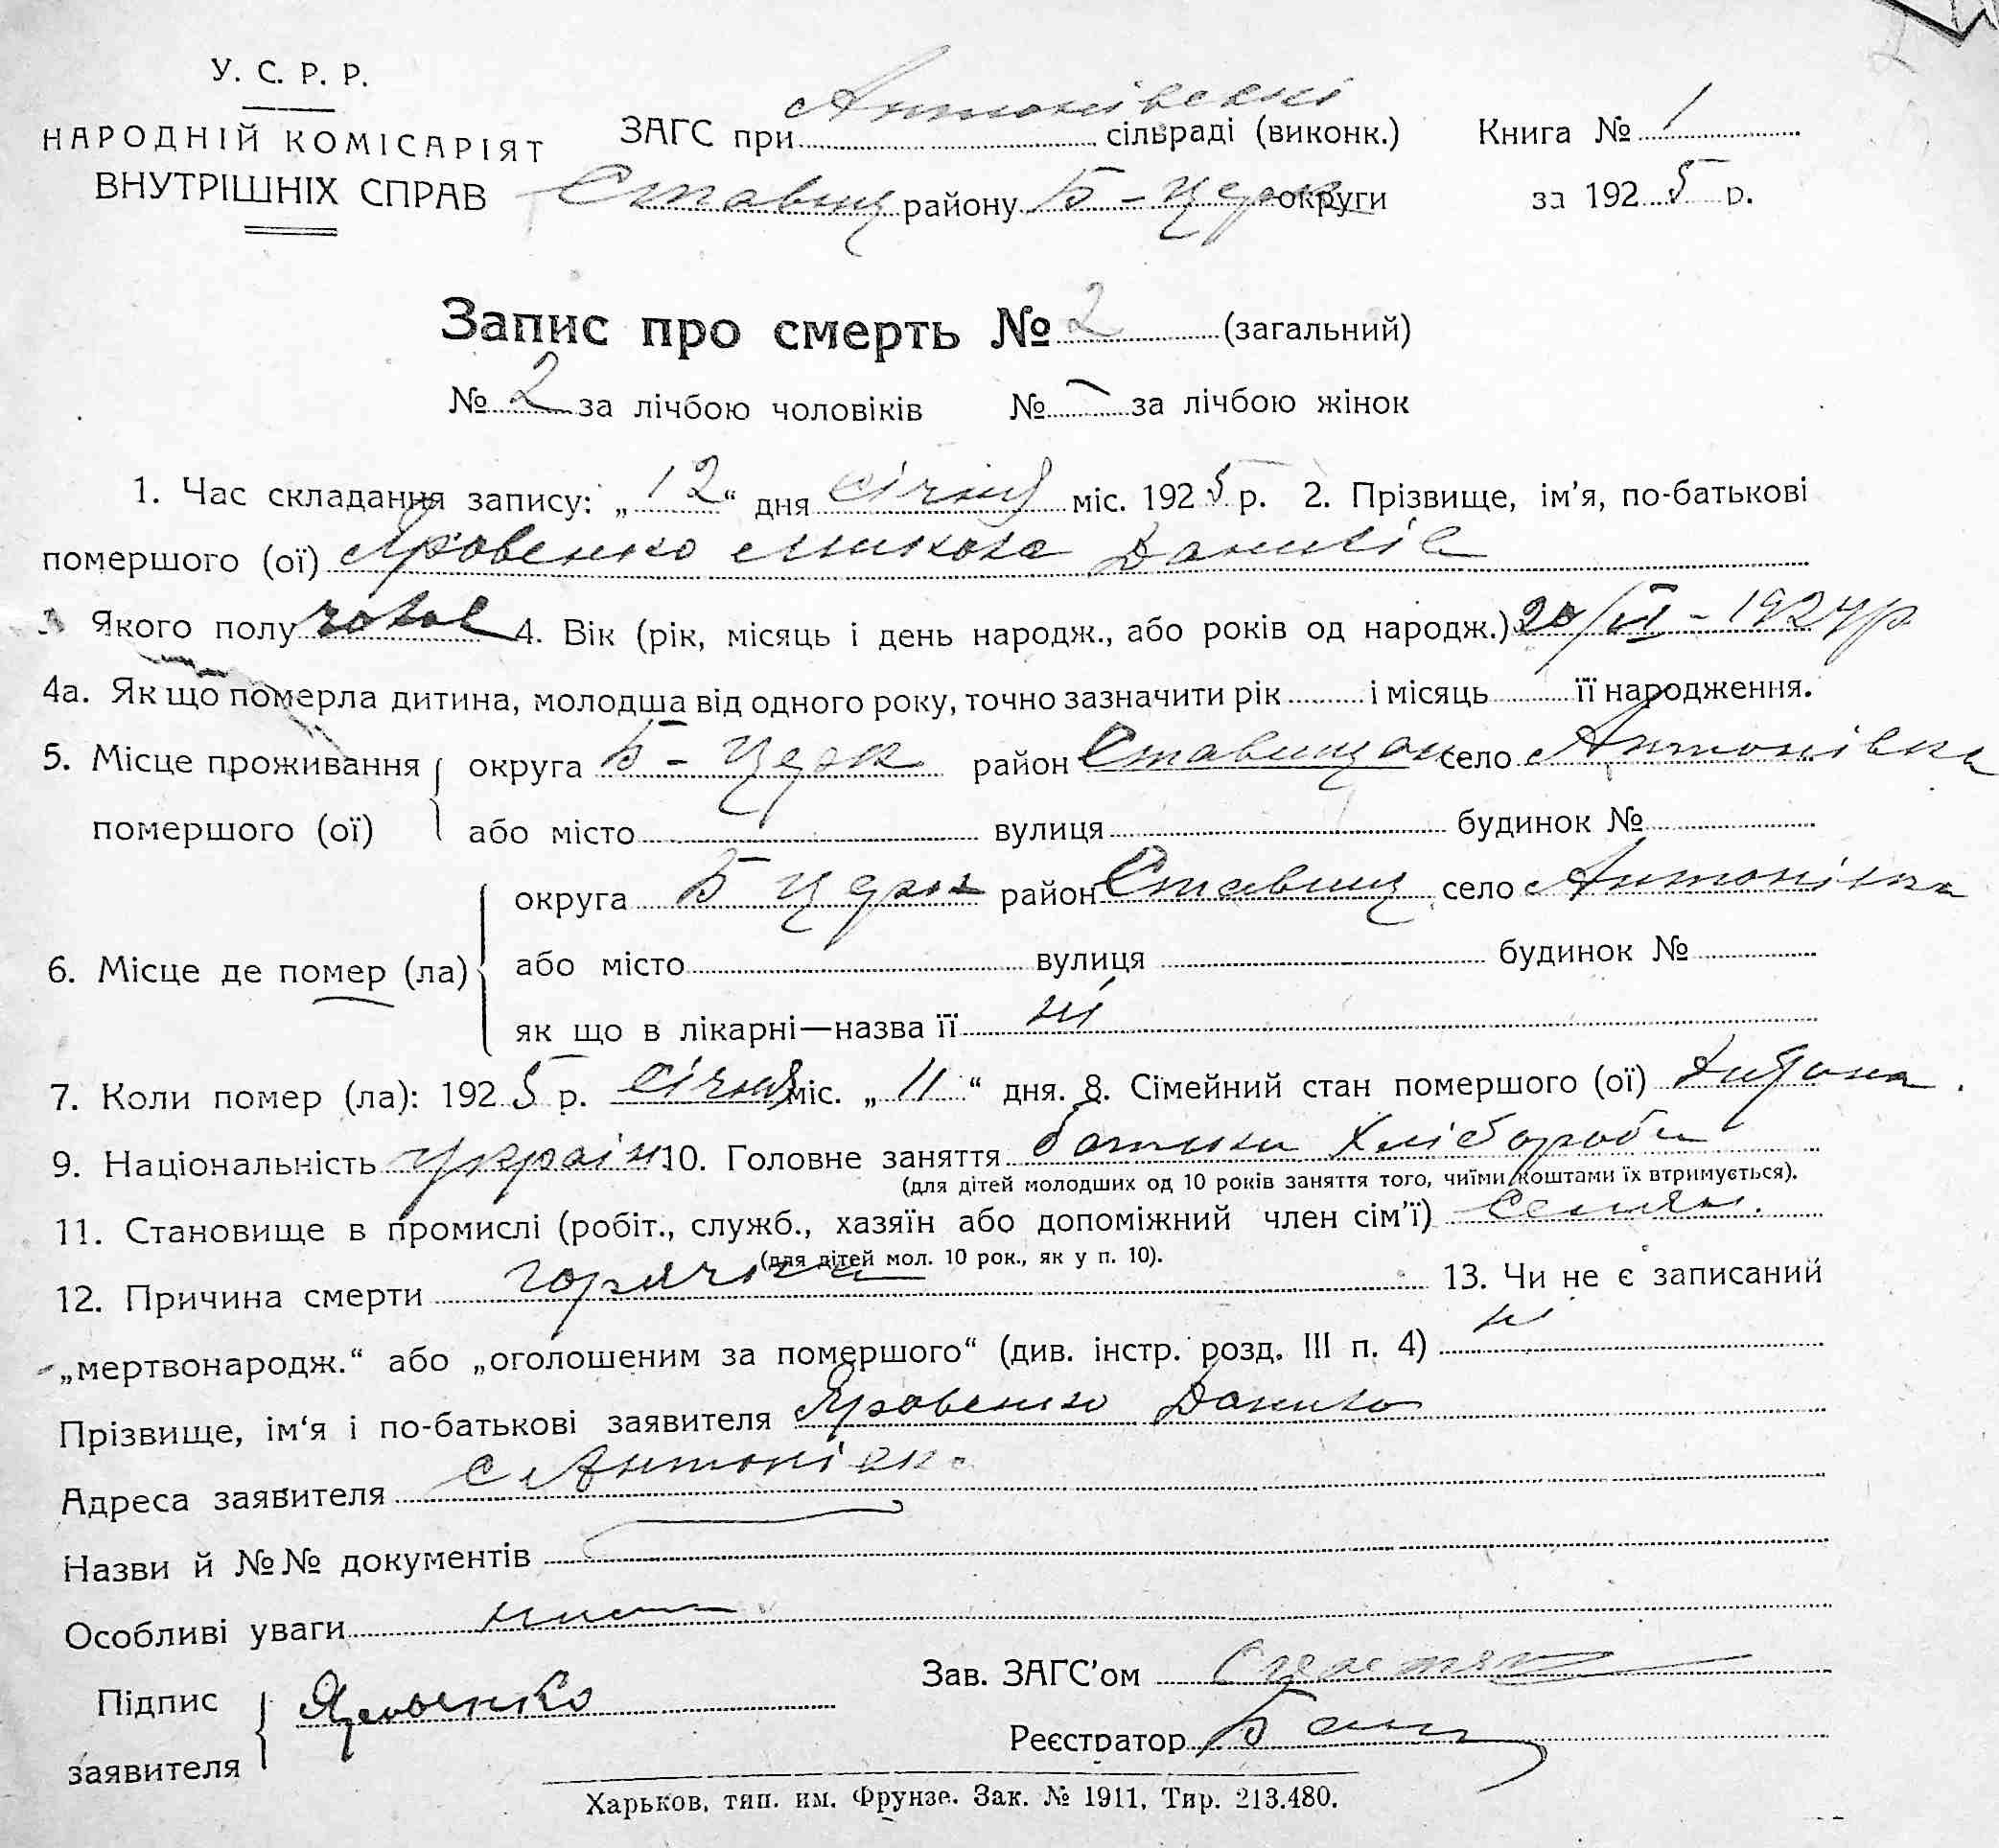 У. С. Р. Р.
НАРОДНІЙ КОМІСАРІЯТ
ВНУТРІШНІХ СПРАВ
ЗАГС при Антонівскі сільраді (виконк.) Книга № 1
Ставищ району Б-Церк округи за 1925 р.
Запис про смерть № 2 (загальний)
№ 2 за лічбою чоловіків № - за лічбою жінок
1. Час складання запису: „12“ дня січня міс. 1925 р. 2. Прізвище, ім’я, по-батькові
помершого (ої) Яровенко Микола Данилів
3. Якого полу чолов 4. Вік (рік, місяць і день народж., або років од народж.) 1924 р
4а. Як що померла дитина, молодша від одного року, точно зазначити рік і місяць її народження.
5. Місце проживання помершого (ої) округа Б-Церк район Ставищан село Антонівка
або місто вулиця будинок №
6. Місце де помер (ла) округа Б Церк район Ставищ село Антонівка
або місто вулиця будинок №
як що в лікарні—назва її ні
7. Коли помер (ла): 1925 р. січня міс. „11“ дня. 8. Сімейний стан помершого (ої) дитина.
9. Національність україн 10. Головне заняття батьки хлібороби
(для дітей молодших од 10 років заняття того, чиїми коштами їх втримується).
11. Становище в промислі (робіт., служб., хазяїн або допоміжний член сім’ї)
(для дітей мол. 10 рок., як у п. 10).
12. Причина смерти горячка 13. Чи не є записаний
„мертвонародж.“ або „оголошеним за помершого“ (див. інстр. розд. III п. 4) ні
Прізвище, ім‘я і по-батькові заявителя Яровенко Данило
Адреса заявителя с Антонівка
Назви й №№ документів
Особливі уваги
Підпис заявителя Яровенко
Зав. ЗАГС’ом
Реєстратор
Харьков, тип. им. Фрунзе. Зак. № 1911, Тир. 213.480.